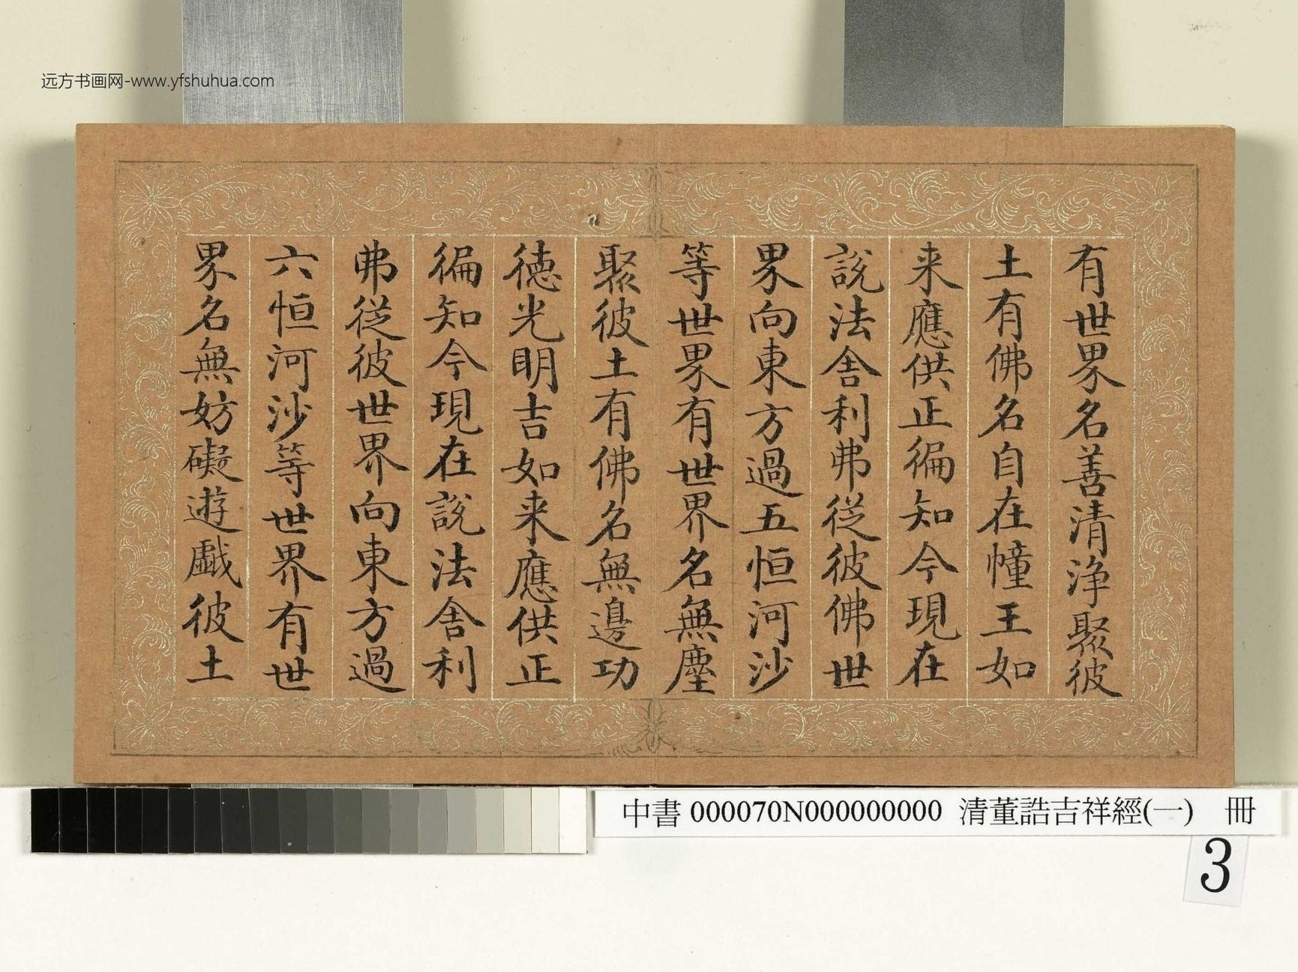 远方书画网-www.yfshuhua.com
有世界名善清淨聚彼
土有佛名自在幢王如
来應供正徧知今現在
說法舍利弗從彼佛世
界向東方過五恒河沙
等世界有世界名無塵
聚彼土有佛名無邊功
德光明吉如来應供正
徧知今現在說法舍利
弗從彼世界向東方過
六恒河沙等世界有世
界名無妨礙遊戲彼土
中書 000070N000000000 清董誥吉祥經(一) 冊
3